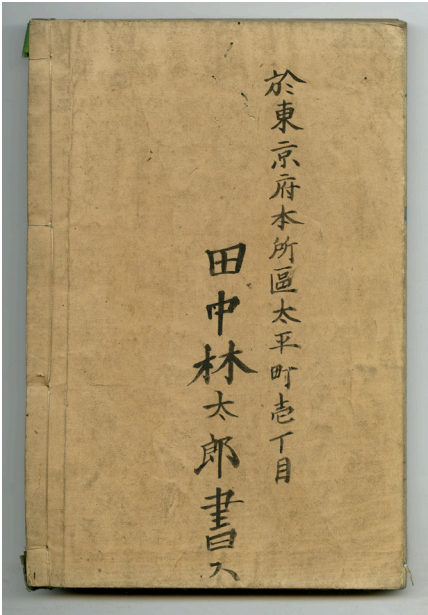 於東京府本所區太平町壱丁目
田中林太郎書ス